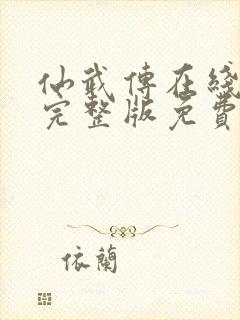 仙武傳在綫
完整版免費
依蘭